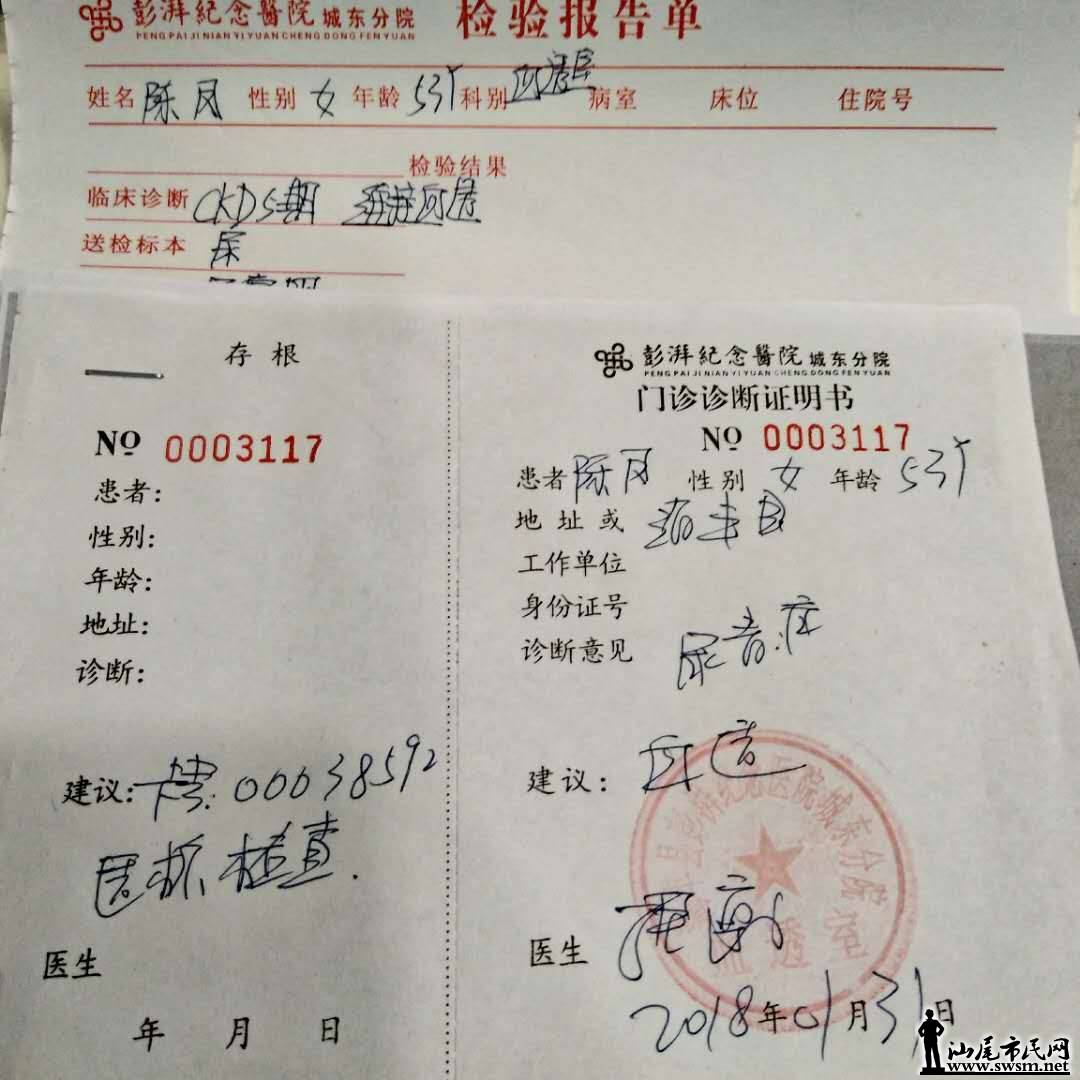 彭湃紀念醫院 城东分院 检验报告单
PENG PAI JI NIAN YI YUAN CHENG DONG FEN YUAN
姓名 陈凤 性别 女 年龄 53岁 科别 病室 床位 住院号
检验结果
临床诊断 CKD5期
送检标本 尿
存根
NO 0003117
患者:
性别:
年龄:
地址:
诊断:
建议: 00038592
医生
年 月 日
彭湃紀念醫院 城东分院
PENG PAI JI NIAN YI YUAN CHENG DONG FEN YUAN
门诊诊断证明书
NO 0003117
患者 陈凤 性别 女 年龄 53岁
地址或
工作单位
身份证号
诊断意见 尿毒症
建议: 血透
医生
2018年01月31日
汕尾市民网
www.swsm.net